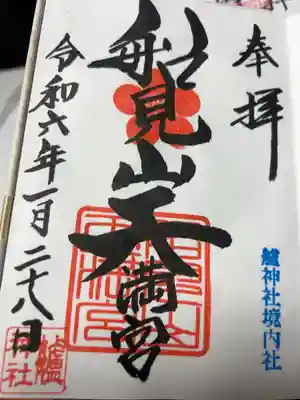 奉拝
船見山天満宮
令和六年一月二十八日
艫神社境内社
艫神社